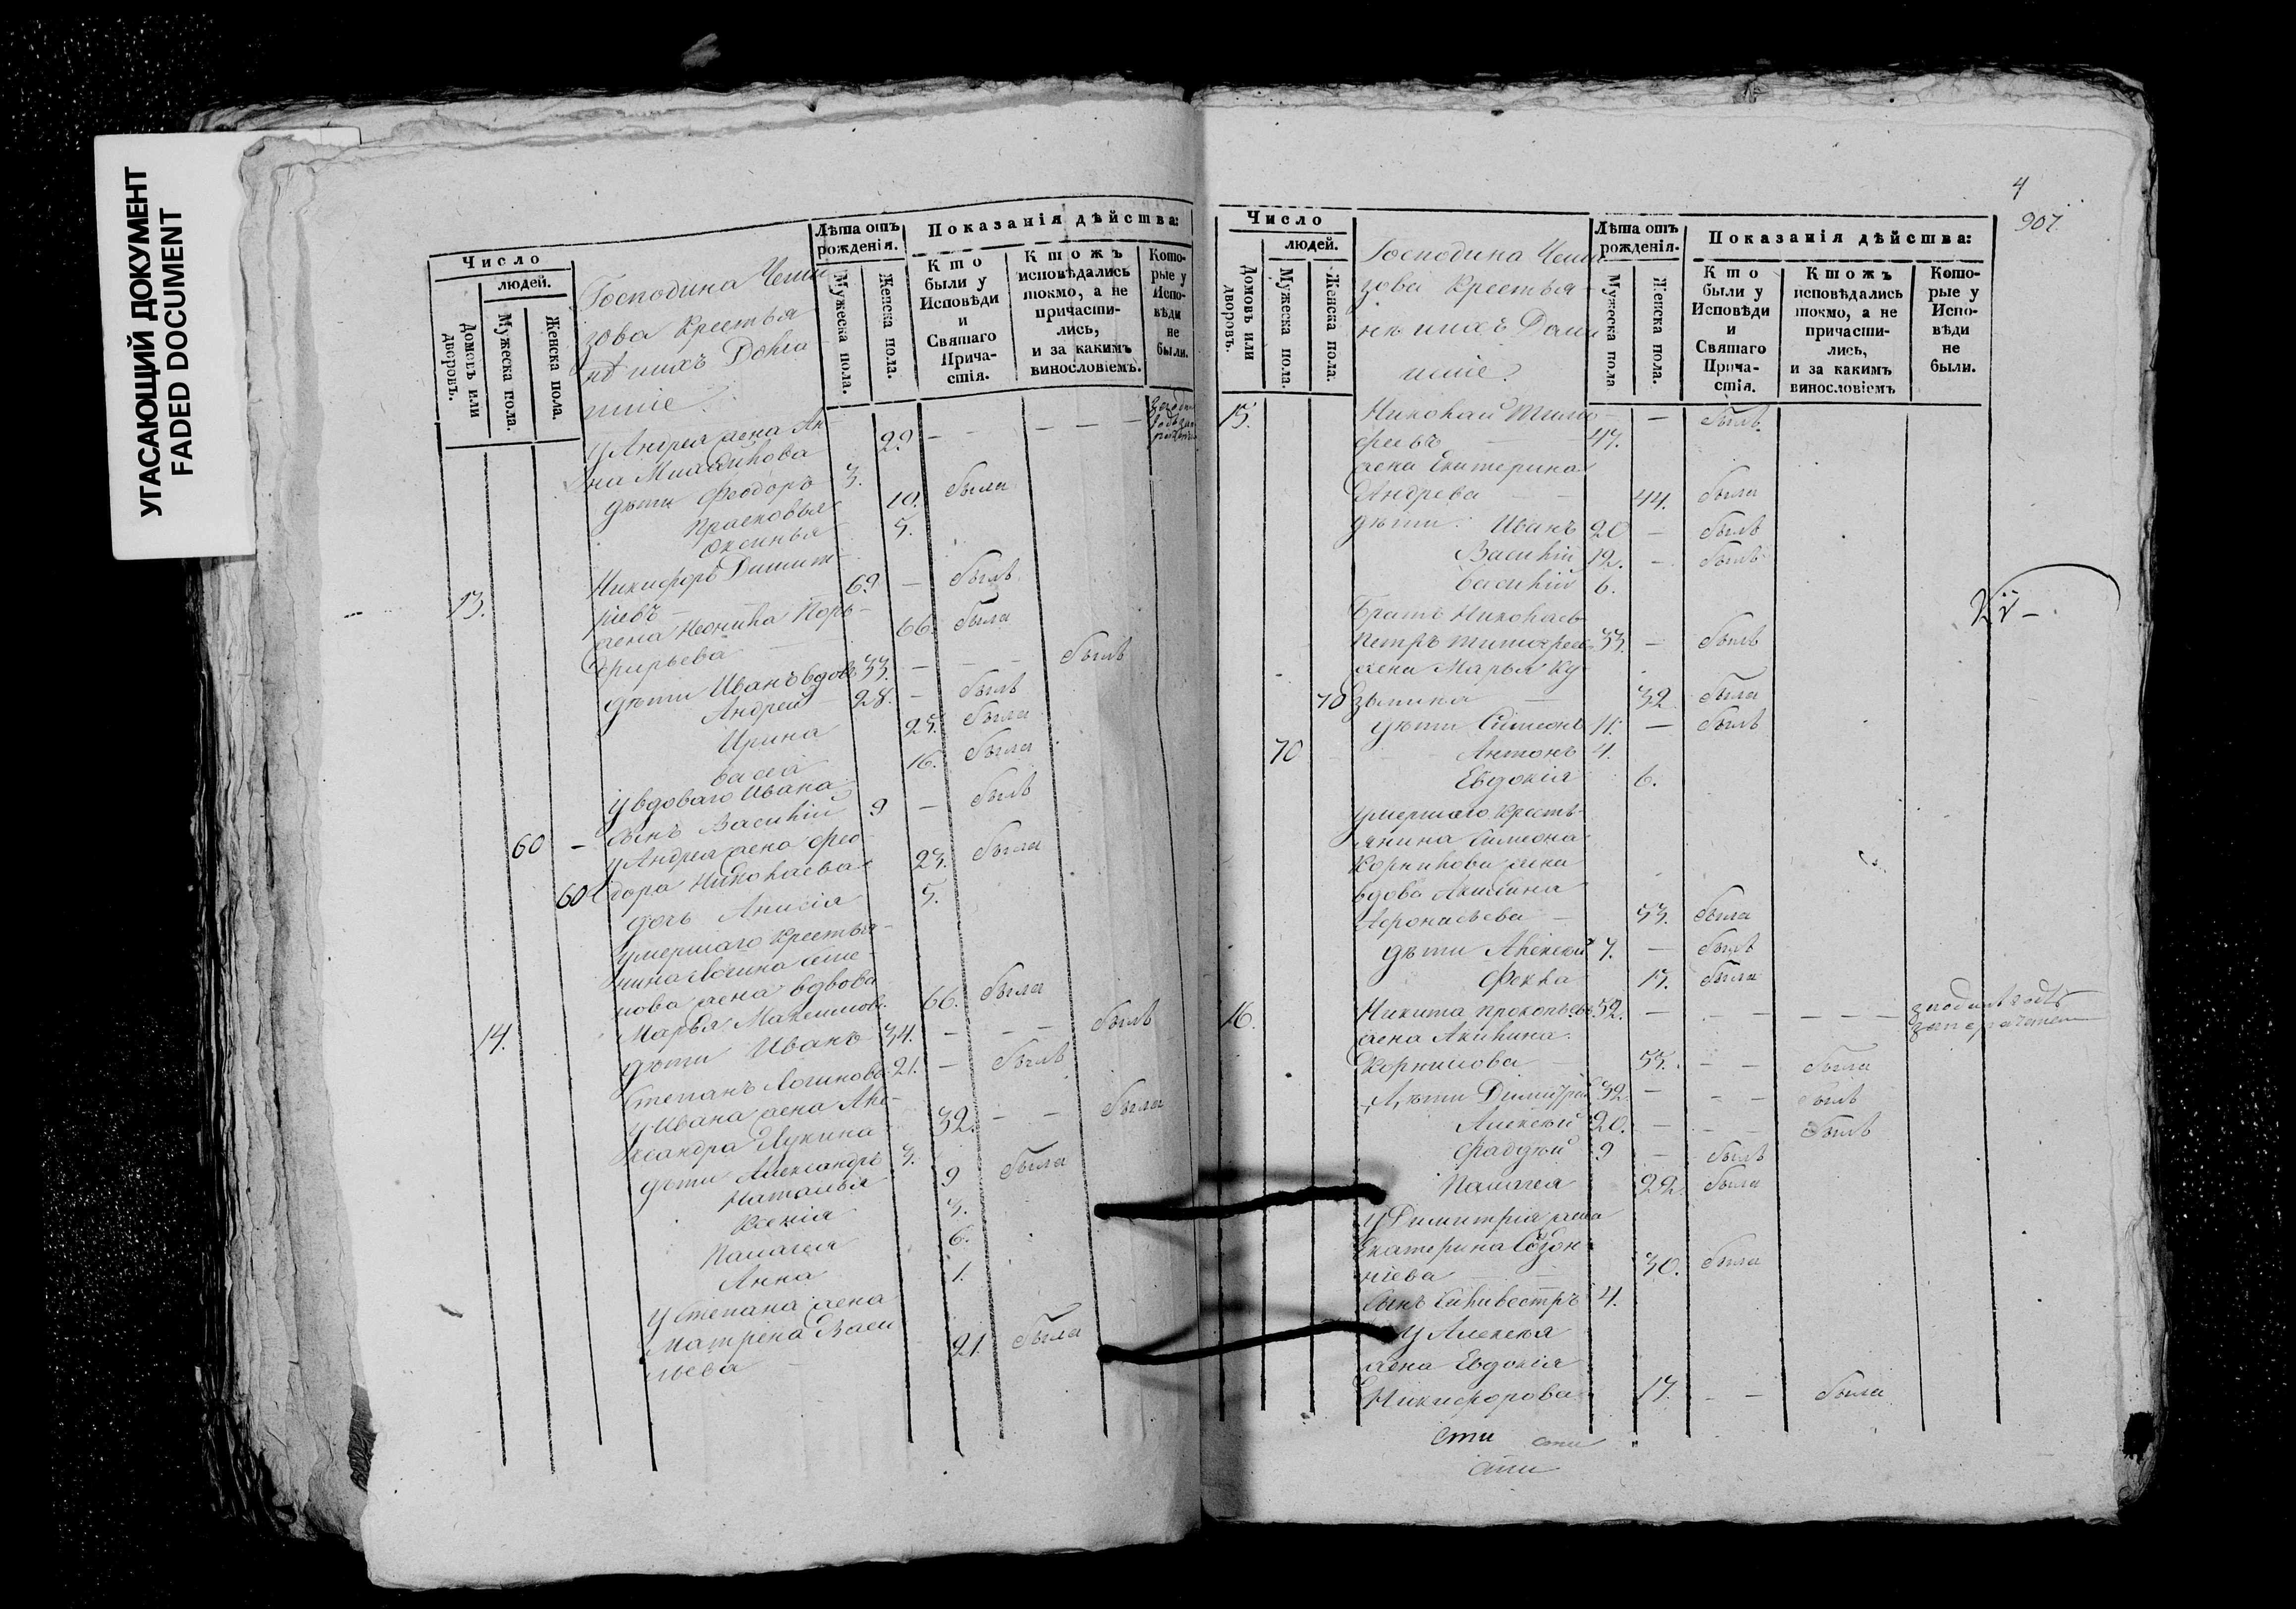 УГАСАЮЩИЙ ДОКУМЕНТ
FADED DOCUMENT
Число
людей.
Домовъ или дворовъ.
Мужеска пола.
Женска пола.
Господина Чеми
зова Крестья
нѣ ихъ Дома
шніе.
Лѣта отъ рожденія.
Мужеска пола.
Женска пола.
Показанія дѣйства:
Кто были у Исповѣди и Святаго Прича-стія.
Ктожъ исповѣдались токмо, а не причасти-лись, и за какимъ винословіемъ.
Кото-рые у Испо-вѣди не были.
у Андрея жена Ан
на 29. — — — — —
дѣти Феодоръ 3.
Прасковья 10. была
Оксинья 5.
13. Никифоръ Димит
ріевъ 69. — былъ
жена Неонила Пор-
фирьева 66. была
дѣти Иванъ вдовъ 33. — — — былъ
Андрей 28. — былъ
Ирина 25. была
Васса 16. была
у вдоваго Ивана
60 — сынъ Василій 9 — былъ
у Андрея жена Фео-
60 дора Николаева 23. была
дочь Анисія 5.
умершаго крестья-
нина Логина Семе-
нова жена вдова
14. Марья Максимов. 66. была
дѣти Иванъ 34. — — — былъ
Степанъ Логиновъ 21. — былъ
у Ивана жена Але-
ксандра Лукина 32. — — была
дѣти Александръ 3.
Наталья 9 была
Ксенія 3.
Палагея 6.
Анна 1.
у Степана жена
Матрена Васи
льева 21. была
4
907.
Число
людей.
Домовъ или дворовъ.
Мужеска пола.
Женска пола.
Господина Чеми
зова Крестья-
нѣ ихъ Дома
шніе.
Лѣта отъ рожденія.
Мужеска пола
Женска пола.
Показанія дѣйства:
Кто были у Исповѣди и Святаго Прича-стія.
Ктожъ исповѣдались токмо, а не причасти-лись, и за какимъ винословіемъ
Кото-рые у Испо-вѣди не были.
15. Николай Тимо-
феевъ 47. — былъ
жена Екатерина
Андрева 44. была
дѣти Иванъ 20 — былъ
Василій 12. — былъ
Василій 6.
Братъ Николаев
Петръ Тимофеев 33. — былъ
жена Марья Ку
70 зьмина 32 была
дѣти Симеонъ 11. — былъ
70 Антонъ 4.
Евдокія 6.
умершаго кресть-
янина Симеона
Корнилова жена
вдова Акилина
Афонасьева — 53. была
дѣти Алексѣй 7. — былъ
Фекла 13. была
16. Никита Прокопьевъ 52. — — — — —
жена Акилина
Корнилова — 55. — — была
Дѣти Димитрій 32. — — — былъ
Алексѣй 20. — — — былъ
Фадѣй 9 — былъ
Палагея 22. была
у Димитрія жена
Екатерина Созон
тіева 30. была
сынъ Сильвестръ 4.
у Алексѣя
жена Евдокія
Никифорова 17. — — была
сти сти
сти